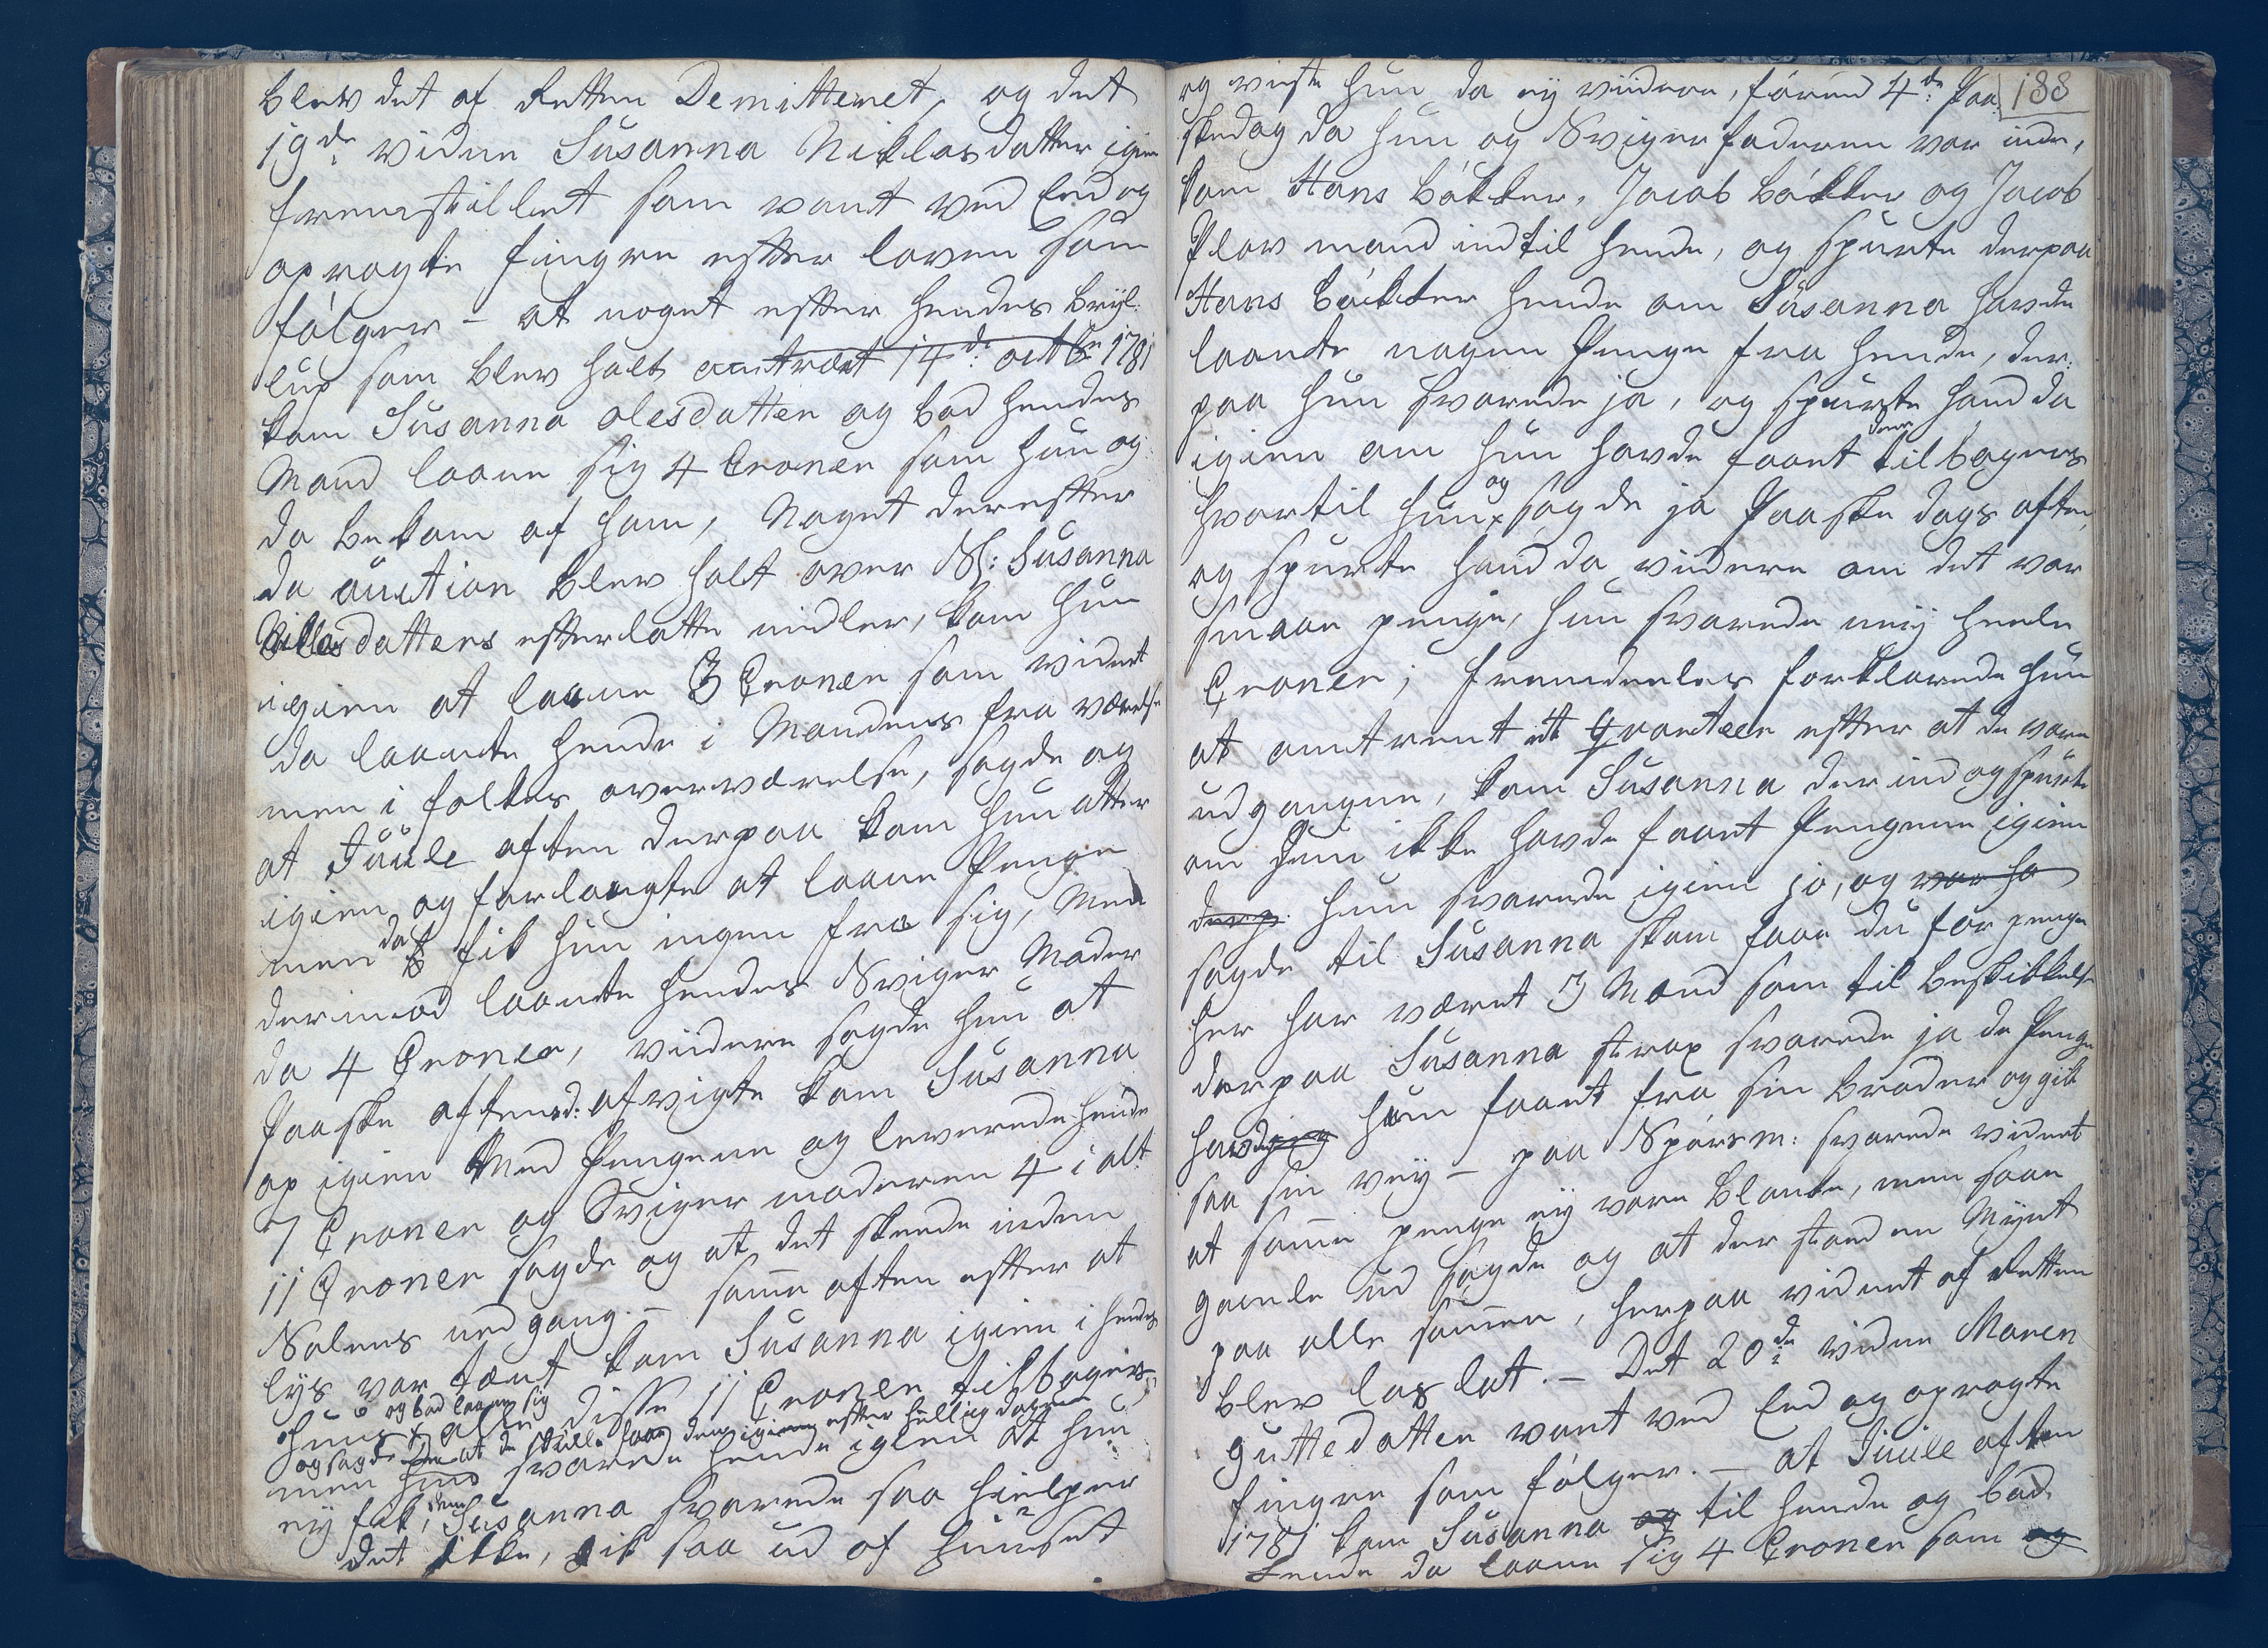 blev det af Retten Demitteret, og det
19de vidne Susanna Niklasdatter igien
fremstillet som vant ved Eed og
opragte fingre efter loven som
følger - at noget efter hendes Bryl-
lup som blev holt omtrent 14de octbr 1781
kom Susanna olesdatter og bad hendes
Mand laane sig 4 Croner som hun og
da bekom af ham, Noget derefter
da auction blev holt over Sl: Susanna
Nilsdatters efterlatte midler, kom hun
igien at laane 3 Croner som vidnet
da laante hende i Mandens fra værelse
men i folkes overværelse, sagde og
at Juule aften derpaa kom hun atter
igien og forlangte at laane Penge
men da fik hun ingen fra sig, Men
derimod laante hendes Sviger Moder
da 4 Croner, viidere sagde hun at
Paaske aftend: afvigte kom Susanna
op igien Med Pengene og leverede hende
7 Croner og Sviger moderen 4 i alt
11 Croner sagde og at det skeede inden
Solens nedgang. - samme aften efter at
lys var tænt kom Susanna igien i hendes
og bad laane sig
huus alle disse 11 Croner tilbagers
og sagde at de skulle faae dem igien efter hellig dagene
men hun svarede hende igien at hun
dem
ey fik, Susanna svarede saa hielper
det ikke, gik saa ud af huuset
188
og viste hun da ey viidere, førend 4de Paa
skedag da hun og Svigerfaderen var inde,
kom Hans Båkker, Jacob Båkker og Jacob
Plov mand ind til hende, og spurte derpaa
Hans Båkker hende om Susanna havde
laante nogen Penge fra hende, der-
paa hun svarede ja, og spurte hand da
dem
igien om hun havde faaet tilbagers
og
hvortil hun sagde ja Paaske dags aften,
og spurte hand da viidere om det var
smaae penge, hun svarede neij heele
Croner; fremdeeles forklarede hun
at omtrent et qvarteer efter at de vare
udgangne, kom Susanna der ind og spurte
om hun ikke havde faaet Pengene igien
derp. hun svarede igien jo, og var ha
sagde til Susanna skam faae du for penge
her har været 3 Mænd som til beskikkelse
derpaa Susanna strax svarede ja de Penge
havde hun faaet fra sin broder og gik
saa sin vey - paa Spørsm: svarede vidnet
at samme penge ey vare blanke, men saae
gamle ud sagde og at der stoed en Mynt
paa alle sammen, herpaa vidnet af Retten
blev løs lat. - Det 20de vidne Maren
guttedatter vant ved Eed og opragte
fingre som følger. - at Juule aften
1781 kom Susanna og til hende og bad
hende da laane sig 4 Croner som og